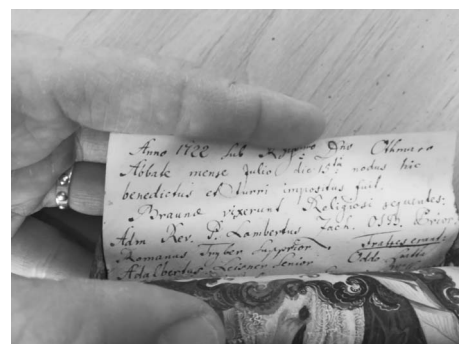 Anno 1722 sub Rmo Dno Othmaro
Abbate mense Julio die 15ta nodus hic
benedictus et turri impositus fuit.
Braunae vixerunt Religiosi sequentes.
Adm Rev. P. Lambertus Zach. O.S.B. Prior.
Romanus Supprior
Adalbertus Senior Oddo